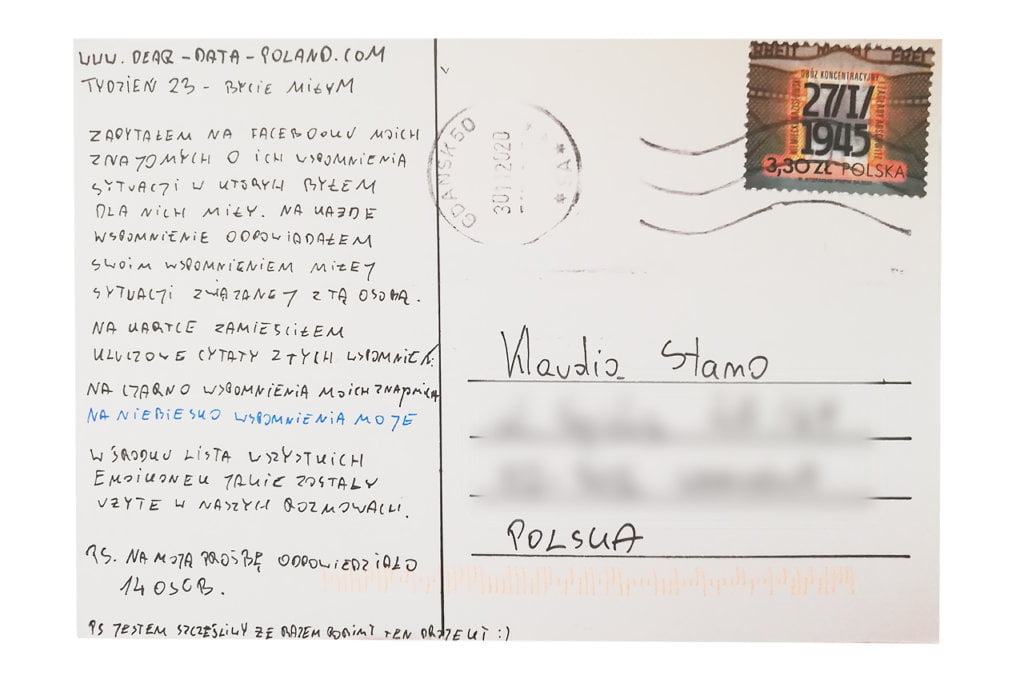 WWW.DEAR-DATA-POLAND.COM
TYDZIEŃ 23 - BYCIE MIŁYM
ZAPYTAŁEM NA FACEBOOKU MOICH
ZNAJOMYCH O ICH WSPOMNIENIA
SYTUACJI W KTÓRYCH BYŁEM
DLA NICH MIŁY. NA KAŻDE
WSPOMNIENIE ODPOWIADAŁEM
SWOIM WSPOMNIENIEM MIŁEJ
SYTUACJI ZWIĄZANEJ Z TĄ OSOBĄ.
NA KARTCE ZAMIEŚCIŁEM
KLUCZOWE CYTATY Z TYCH WSPOMNIEŃ:
NA CZARNO WSPOMNIENIA MOICH ZNAJOMYCH
NA NIEBIESKO WSPOMNIENIA MOJE
W ŚRODKU LISTA WSZYSTKICH
EMOIKONEK JAKIE ZOSTAŁY
UŻYTE W NASZYCH ROZMOWACH.
PS. NA MOJĄ PROŚBĘ ODPOWIEDZIAŁO
14 OSÓB.
PS JESTEM SZCZĘŚLIWY ŻE RAZEM ROBIMY TEN PROJEKT :)
GDAŃSK 50
30 1 2020
ARBEIT MACHT FREI
OBÓZ KONCENTRACYJNY
I ZAGŁADY AUSCHWITZ
27/I/
1945
3,30 ZŁ POLSKA
Klaudia Stamo
POLSKA